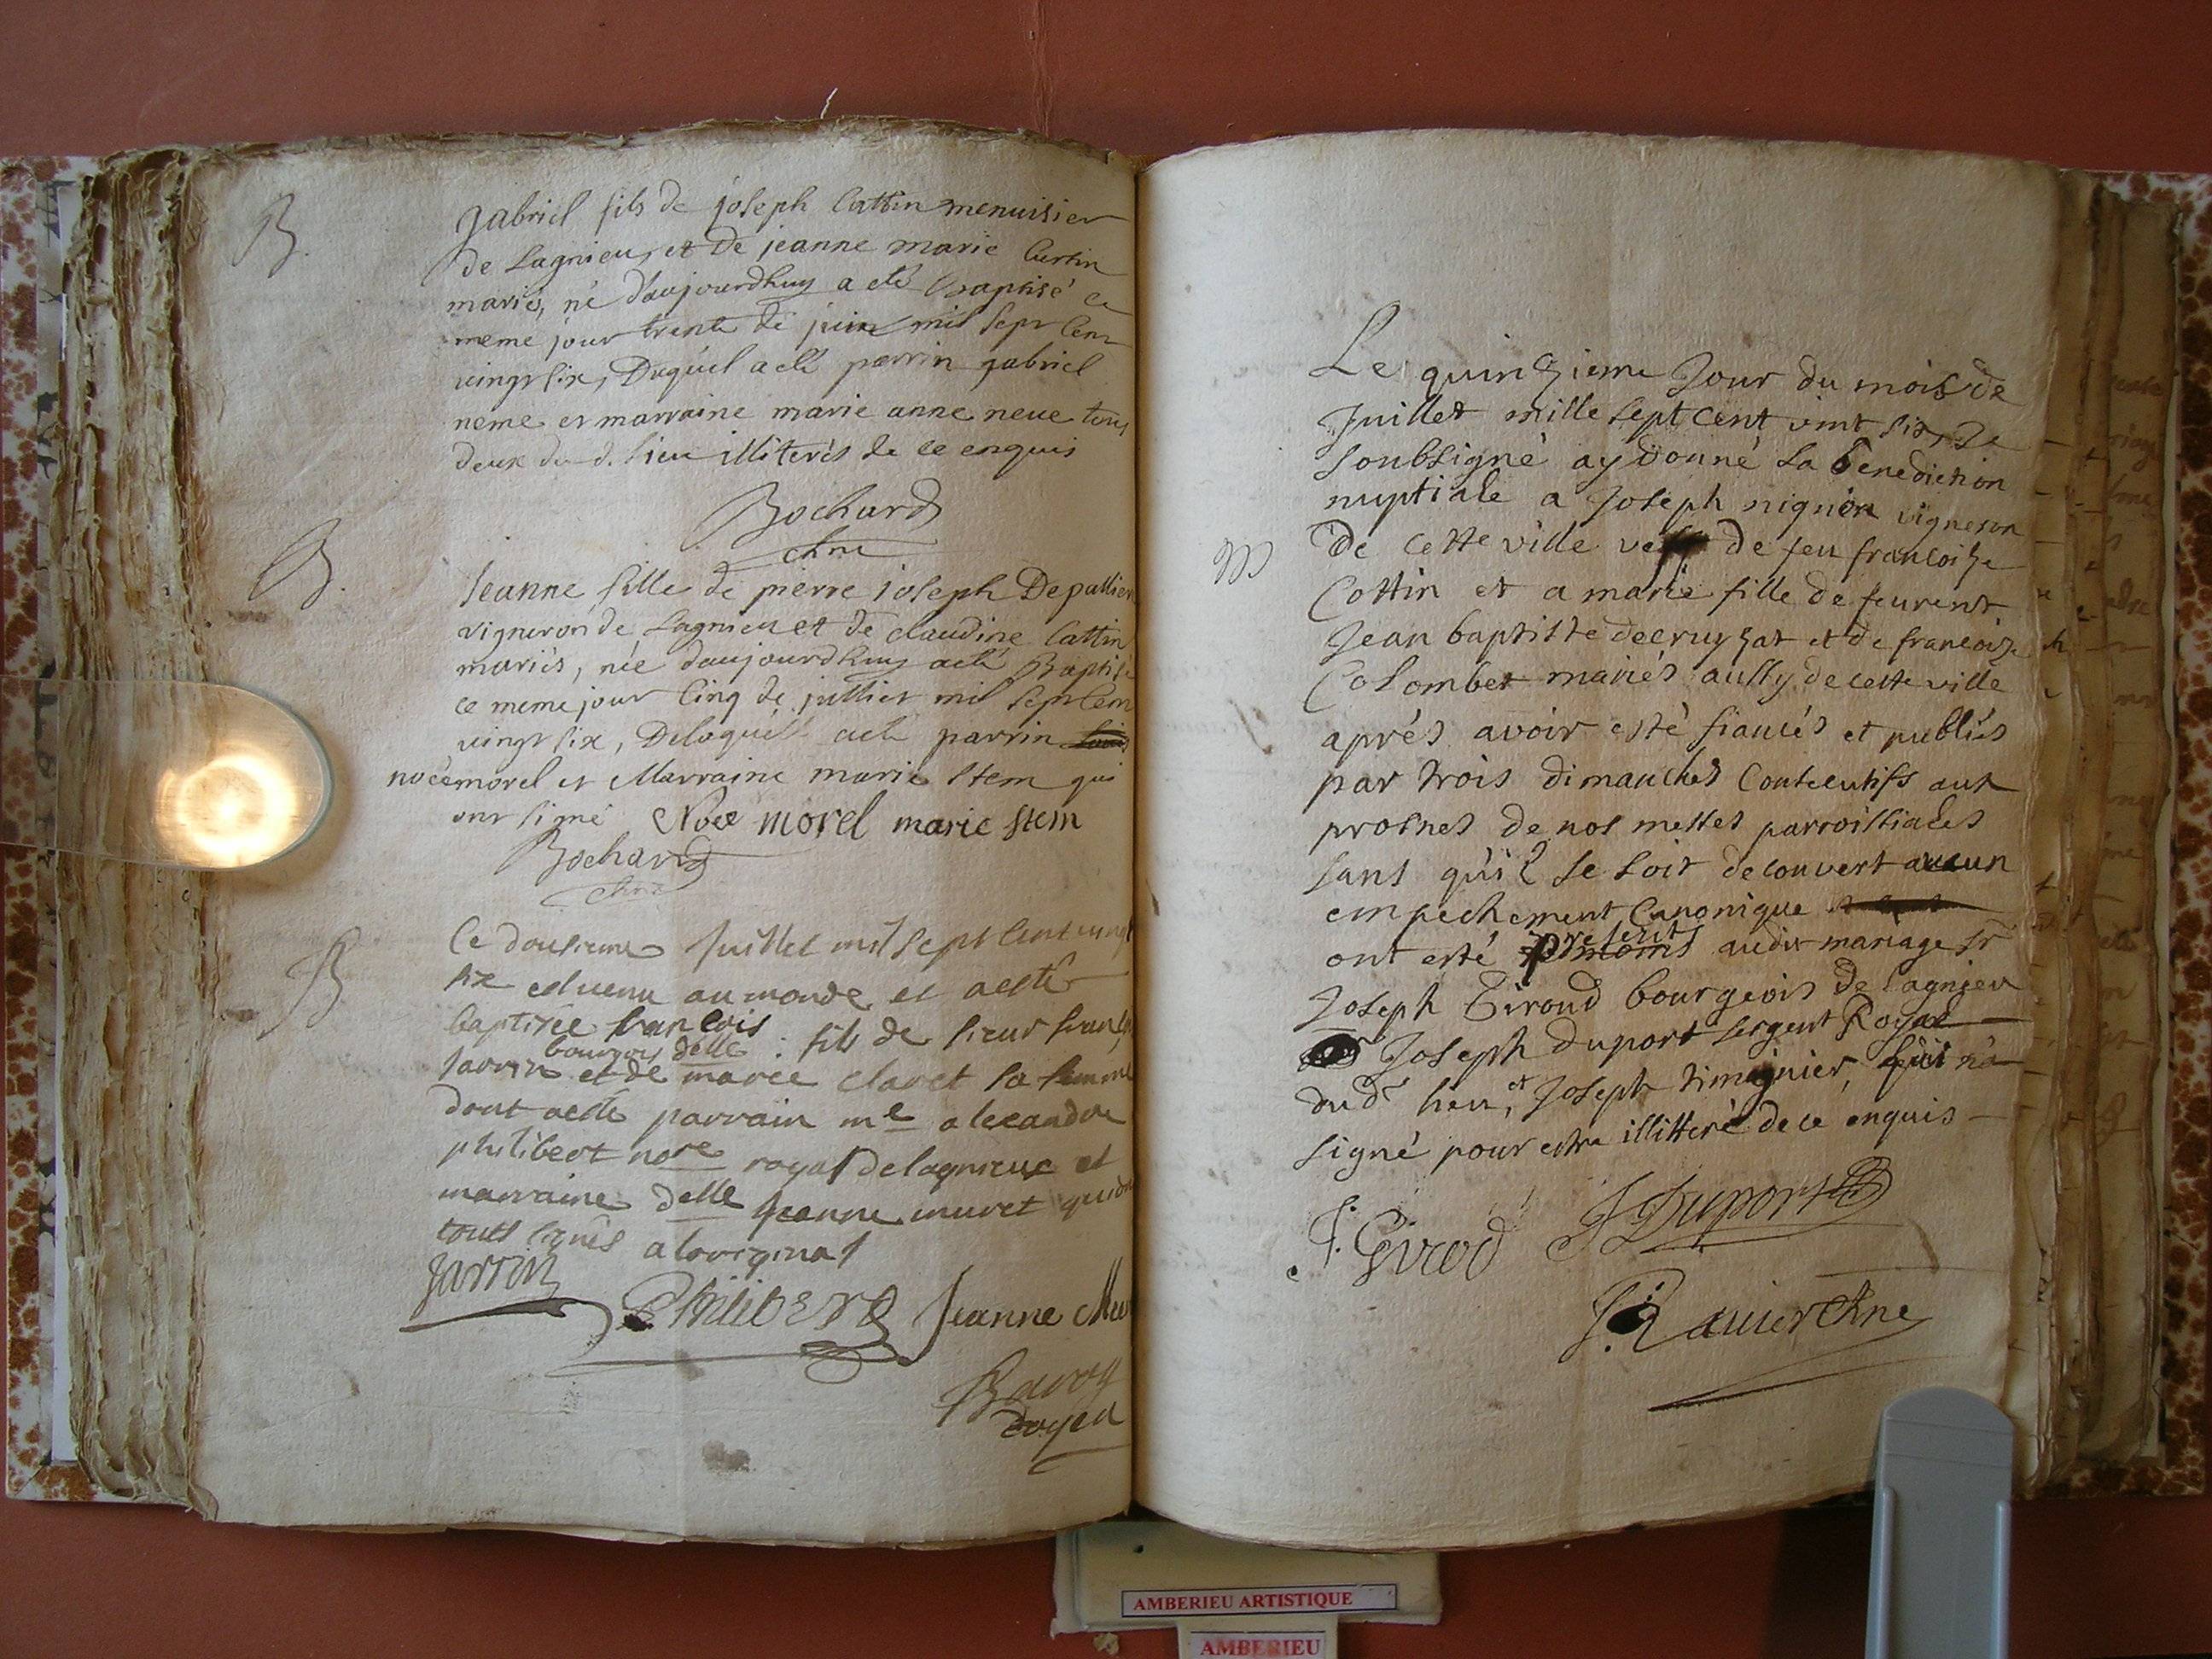 B.
gabriel fils de joseph Cottin menuisier
de Lagnieu, et de jeanne marie Curtin
mariés, né d'aujourdhuy a eté baptisé ce
meme jour trente de juin mil sept cent
vingt six, Duquél a eté parrin gabriel
neme et marraine marie anne neue tous
deux du d. lieu illiterés de ce enquis
Bochard
chne
B.
Jeanne fille de pierre ioseph Depallier
vigneron de Lagnieu et de claudine Cattin
mariés, née daujourdhuy a eté Baptisé
ce meme jour Cinq de juillier mil sept cent
vingt six, Delaquél a eté parrin
noéemorel et Marraine marie Stem qui
ont signé Noée morel marie stem
Bochard
chne
B
Ce dousieme Juillet mil sept cent vingt
six est venu au monde et a esté
baptisée francois fils de sieur francois
bourgois delle :
Jarrin et de marie claret sa femme
dont a esté parrain me alexandre
philibert nore royal de lagnieux et
marraine delle Jeanne muret qui ont
touts signés a loriginal
Jarrin
Philibert Jeanne Mu
Bavoy
doyen
Le quinzieme Jour du mois de
Juillet mille sept cent vint six, Je
soubsigné ay donné la benediction
nuptiale a Joseph nignon vigneron
M
de cette ville de feu francoise
Cottin et a marie fille de feurent
Jean baptiste decruysat et de francoise
Colombet mariés aussy de cette ville
aprés avoir esté fiancés et publiés
par trois dimanches Consecutifs aux
prosnes de nos messes parroissiales
sans qu'il se soit decouvert aucun
empechement Canonique
ont esté presents audit mariage sr
Joseph Giroud bourgeois de lagnieu
Joseph duport sergent Royal
dud lieu, et Joseph timignier, qui n'a
signé pour estre illitteré de ce enquis
J. Girod J Duport
J. Ravier chne
AMBERIEU ARTISTIQUE
AMBERIEU